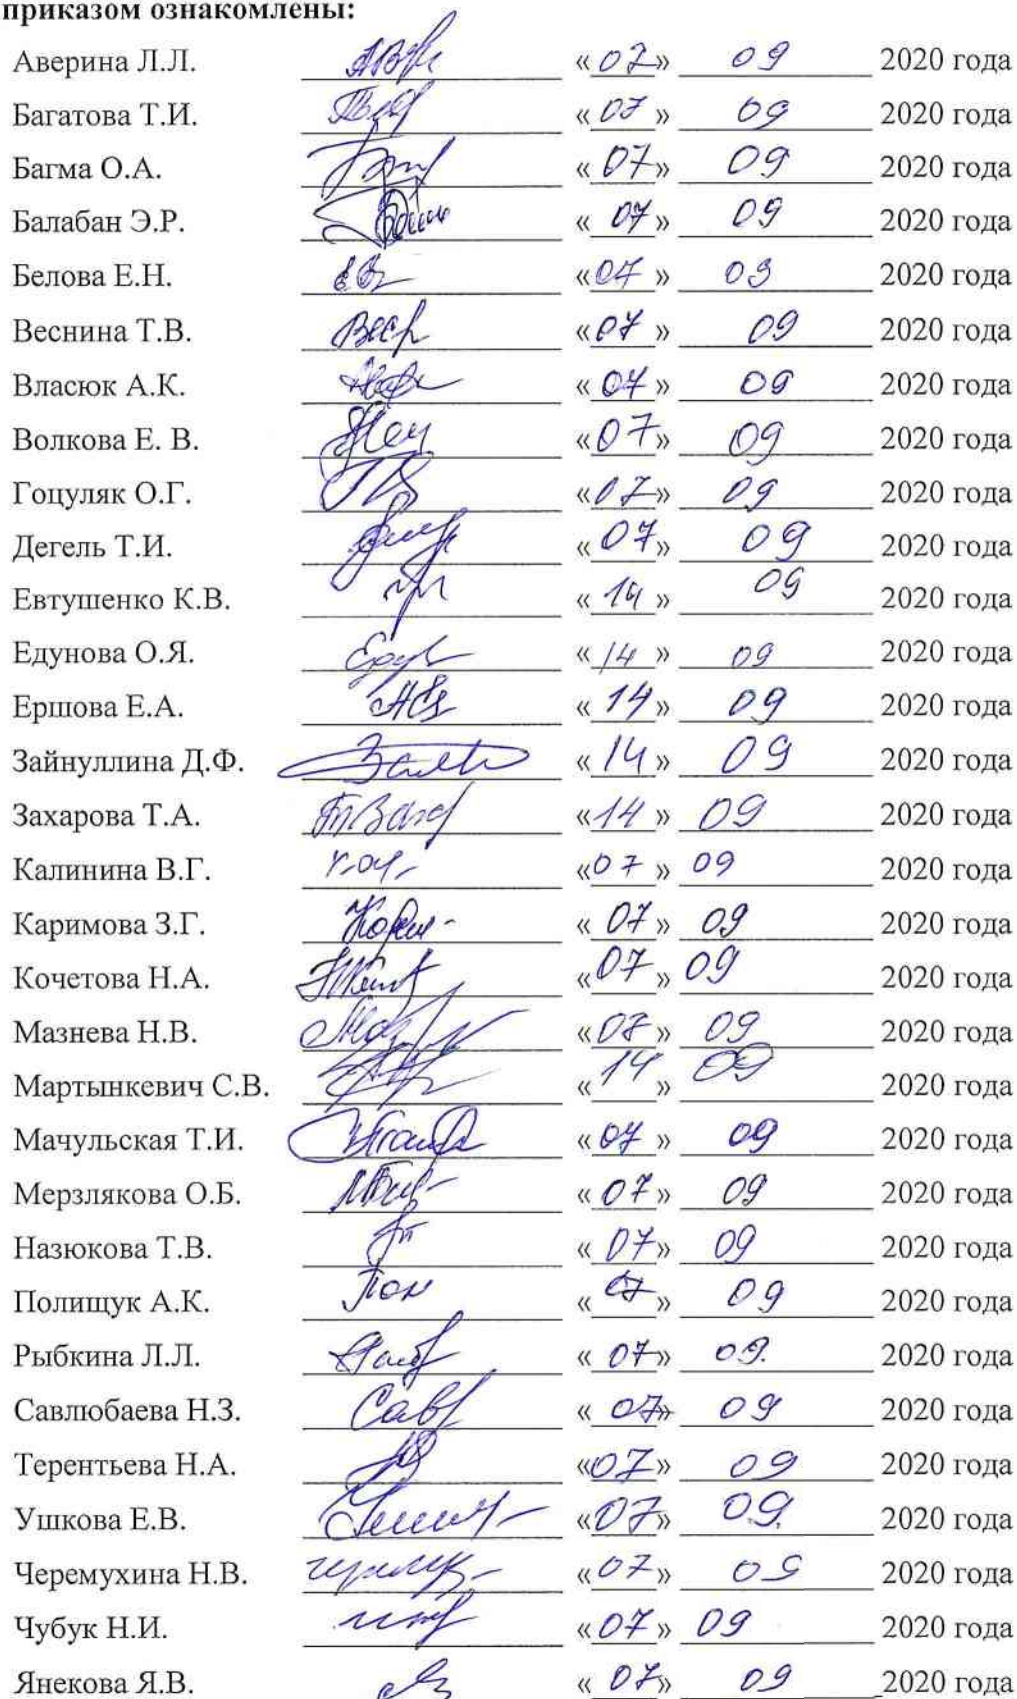 приказом ознакомлены:
Аверина Л.Л. «07» 09 2020 года
Багатова Т.И. «07» 09 2020 года
Багма О.А. «07» 09 2020 года
Балабан Э.Р. «07» 09 2020 года
Белова Е.Н. «07» 09 2020 года
Веснина Т.В. «07» 09 2020 года
Власюк А.К. «07» 09 2020 года
Волкова Е. В. «07» 09 2020 года
Гоцуляк О.Г. «07» 09 2020 года
Дегель Т.И. «07» 09 2020 года
Евтушенко К.В. «14» 09 2020 года
Едунова О.Я. «14» 09 2020 года
Ершова Е.А. «14» 09 2020 года
Зайнуллина Д.Ф. «14» 09 2020 года
Захарова Т.А. «14» 09 2020 года
Калинина В.Г. «07» 09 2020 года
Каримова З.Г. «07» 09 2020 года
Кочетова Н.А. «07» 09 2020 года
Мазнева Н.В. «07» 09 2020 года
Мартынкевич С.В. «14» 09 2020 года
Мачульская Т.И. «07» 09 2020 года
Мерзлякова О.Б. «07» 09 2020 года
Назюкова Т.В. «07» 09 2020 года
Полищук А.К. «07» 09 2020 года
Рыбкина Л.Л. «07» 09. 2020 года
Савлюбаева Н.З. «07» 09 2020 года
Терентьева Н.А. «07» 09 2020 года
Ушкова Е.В. «07» 09. 2020 года
Черемухина Н.В. «07» 09 2020 года
Чубук Н.И. «07» 09 2020 года
Янекова Я.В. «07» 09 2020 года